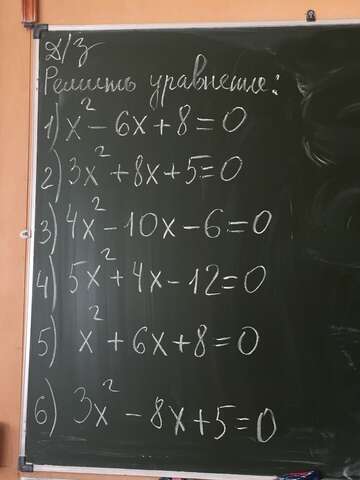 Д/з
Решить уравнение:
1) x² - 6x + 8 = 0
2) 3x² + 8x + 5 = 0
3) 4x² - 10x - 6 = 0
4) 5x² + 4x - 12 = 0
5) x² + 6x + 8 = 0
6) 3x² - 8x + 5 = 0